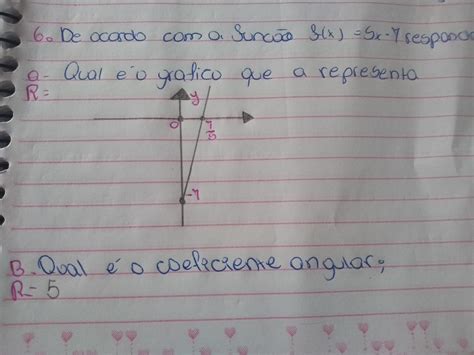 6. De acordo com a função f(x) = 5x - 7 respond
a- Qual é o grafico que a representa
R=
y
0
7/5
-7
B. Qual é o coeficiente angular;
R= 5